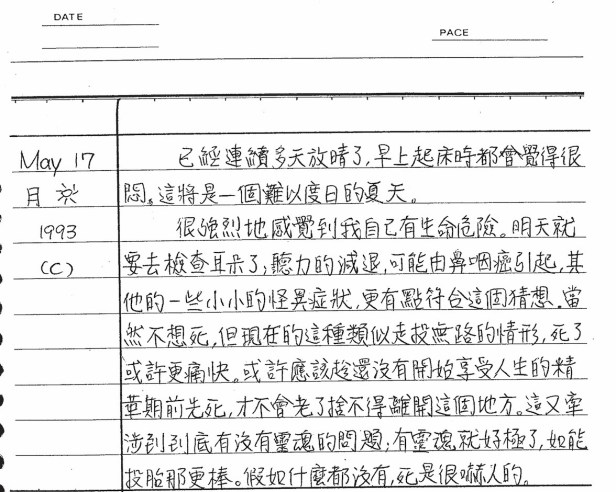 DATE
PACE
May 17
月於
1993
(C)
已經連續多天放晴了,早上起床時都會覺得很
悶。這將是一個難以度日的夏天。
很強烈地感覺到我自己有生命危險。明天就
要去檢查耳朵了,聽力的減退,可能由鼻咽癌引起,其
他的一些小小的怪異症狀,更有點符合這個猜想。當
然不想死,但現在的這種類似走投無路的情形,死了
或許更痛快。或許應該趁還沒有開始享受人生的精
華期前先死,才不會老了捨不得離開這個地方。這又牽
涉到到底有沒有靈魂的問題;有靈魂就好極了,如能
投胎那更棒。假如什麼都沒有,死是很嚇人的。